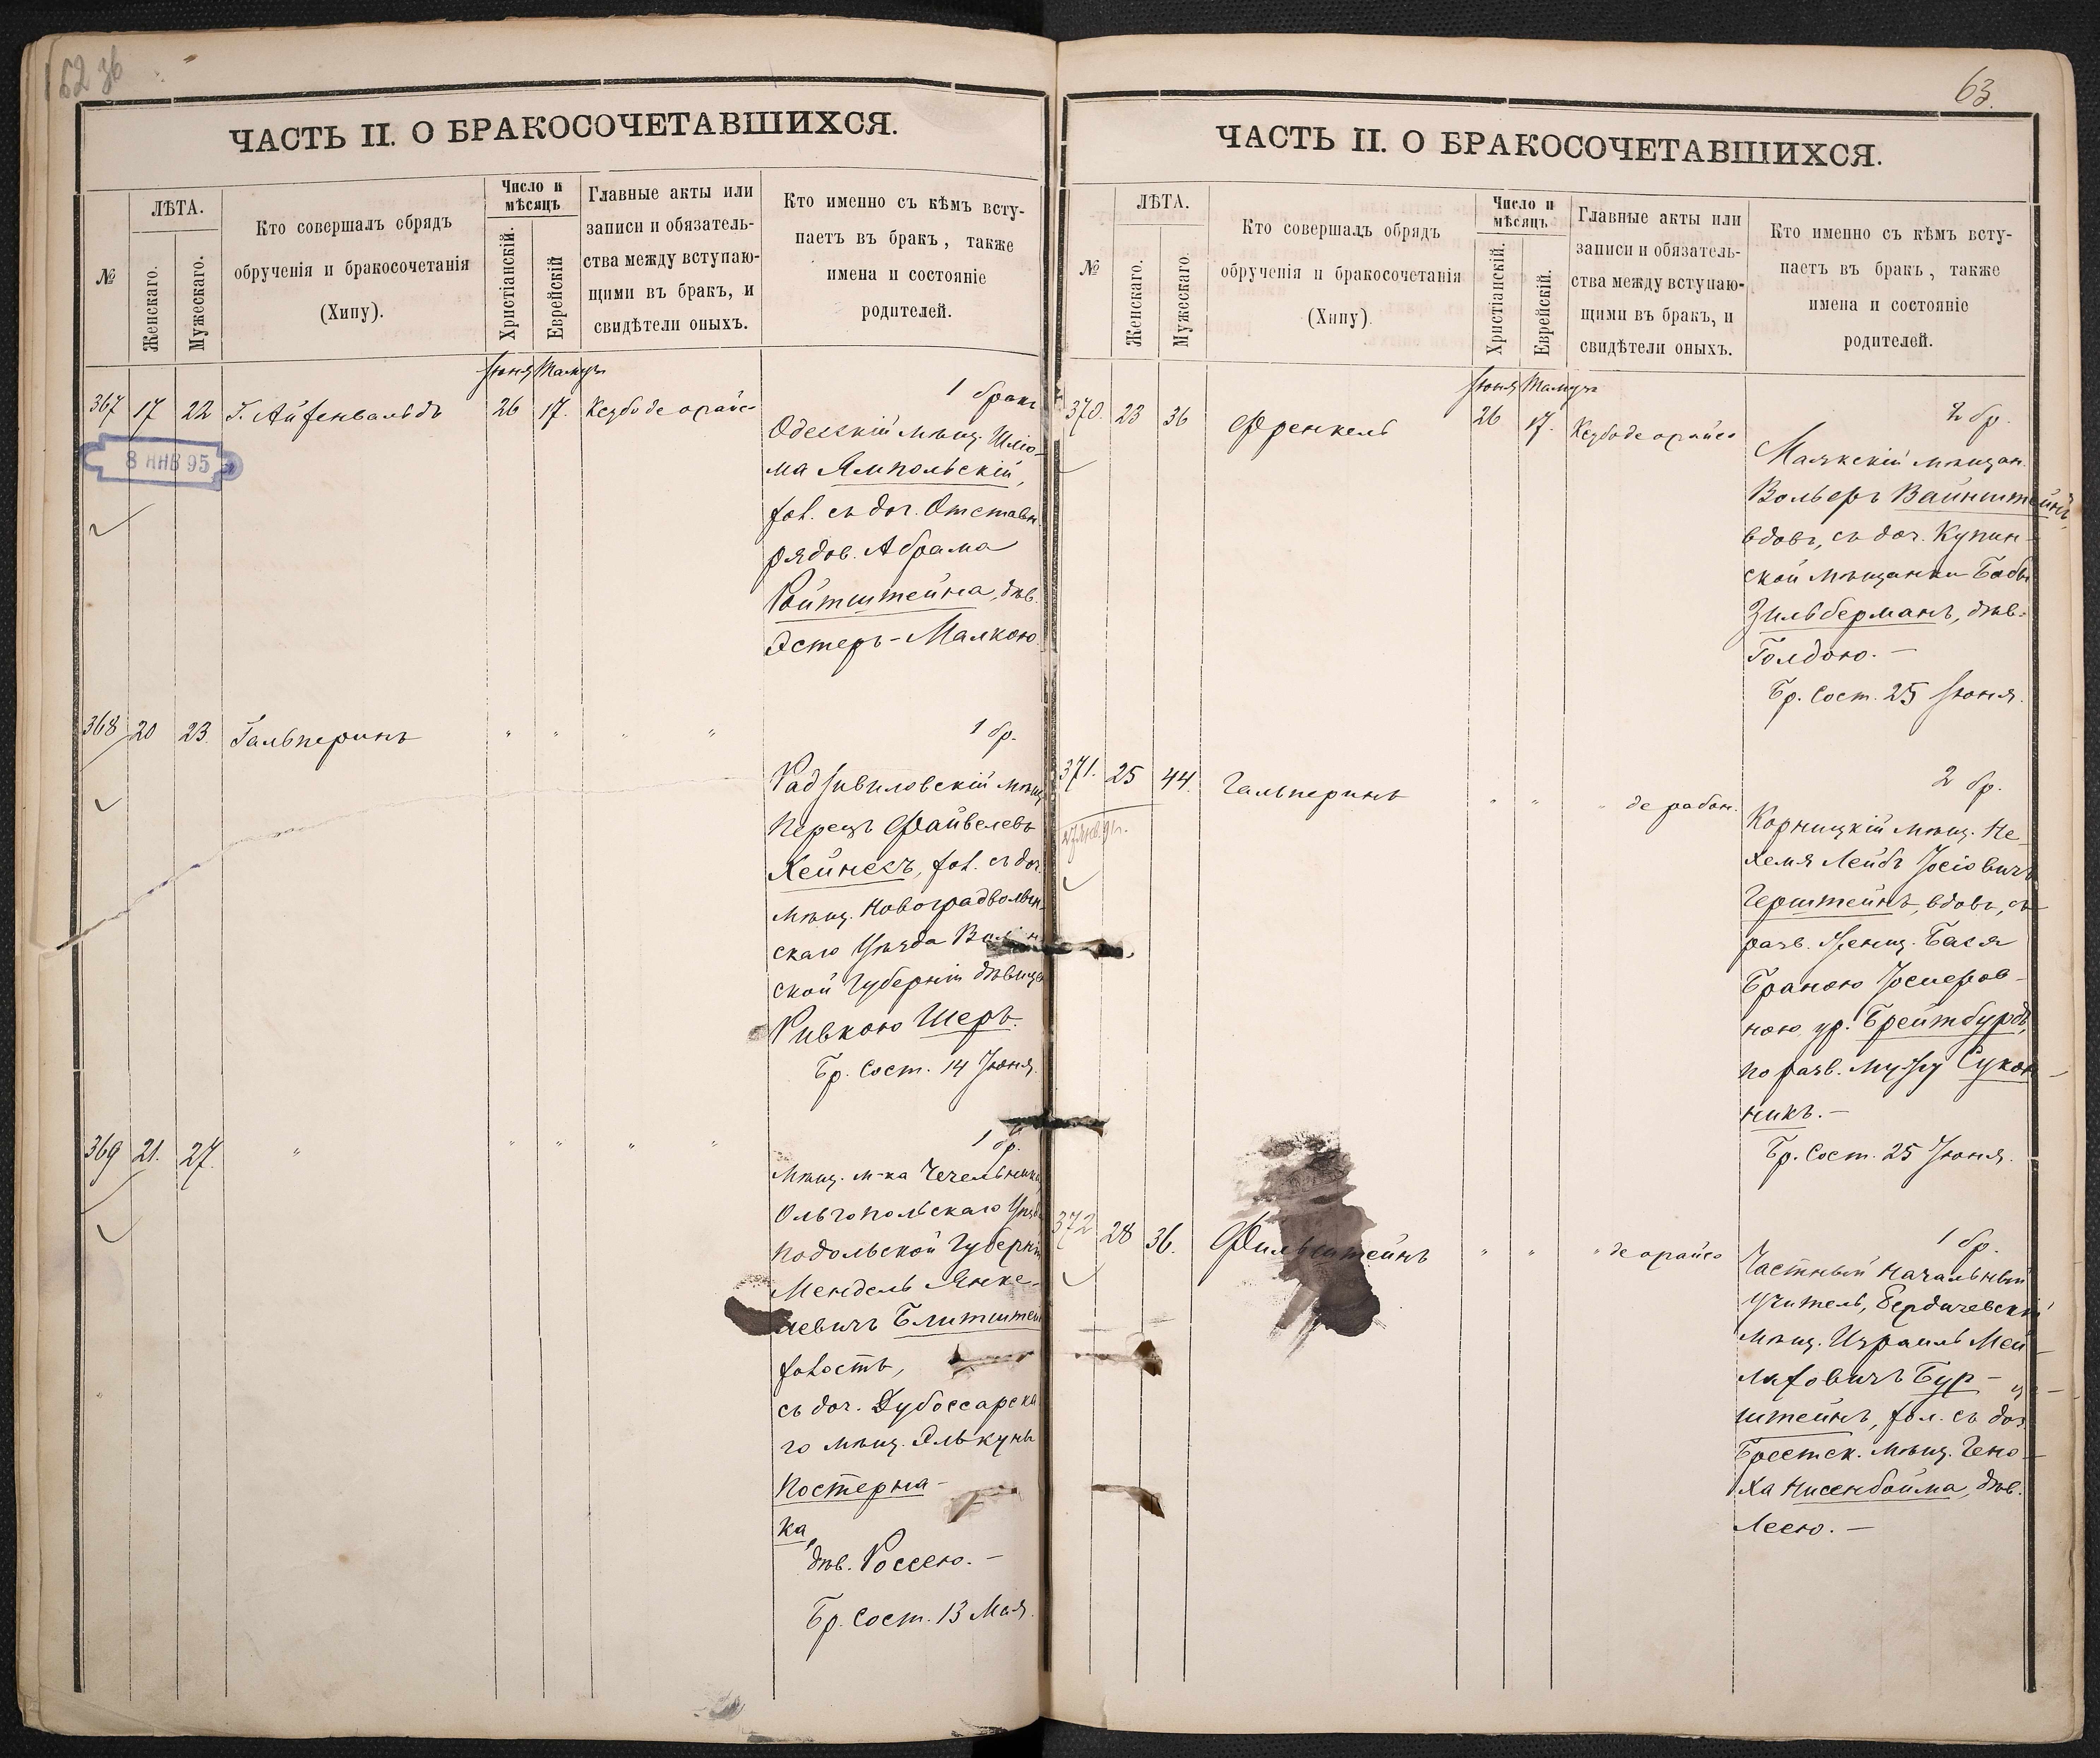 162 об
ЧАСТЬ II. О БРАКОСОЧЕТАВШИХСЯ.
№
ЛѢТА.
Женскаго.
Мужескаго.
Кто совершалъ обрядъ
обрученія и бракосочетанія
(Хипу).
Число и
мѣсяцъ
Христіанскій.
Еврейскій
Главные акты или
записи и обязатель-
ства между вступаю-
щими въ бракъ, и
свидѣтели оныхъ.
Кто именно съ кѣмъ всту-
паетъ въ бракъ, также
имена и состояніе
родителей.
Іюня Тамузъ
367 17 22 Г. Айзенвальдъ 26 17. Ксубо де орайсо
8 ЯНВ 95
1 бракъ
Одесскій мѣщ. Шліо-
ма Ямпольскій,
хол. съ доч. Отставн.
рядов. Абрама
Ройтштейна, дѣв.
Эстеръ-Малкою
368 20 23. Гальперинъ " " " "
1 бр.
Радзивиловскій мѣщ.
Перецъ Файвелевъ
Хейнесъ, хол. съ доч.
мѣщ. Новоградволын-
скаго Уѣзда Волын-
ской Губерніи дѣвицею
Ривкою Шеръ.
Бр. Сост. 14 Іюня.
369 21. 27. " " " " "
1 бр.
Мѣщ. м-ка Чечельника
Ольгопольскаго Уѣзда
Подольской Губерніи
Мендель Янке-
левичъ Блитштейн
холость,
съ доч. Дубоссарска
го мѣщ. Элькуны
Постерна-
ка,
дѣв. Россею. —
Бр. Сост. 13 Мая.
63.
ЧАСТЬ II. О БРАКОСОЧЕТАВШИХСЯ.
№
ЛѢТА.
Женскаго.
Мужескаго.
Кто совершалъ обрядъ
обрученія и бракосочетанія
(Хипу).
Число и
мѣсяцъ
Христіанскій.
Еврейскій.
Главные акты или
записи и обязатель-
ства между вступаю-
щими въ бракъ, и
свидѣтели оныхъ.
Кто именно съ кѣмъ всту-
паетъ въ бракъ, также
имена и состояніе
родителей.
Іюня Тамузъ
370. 23 36 Френкель 26 17. Ксубо де орайсо
2 бр.
Маякскій мѣщан.
Вольфъ Вайнштейнъ,
вдовъ, съ доч. Купин-
ской мѣщанки Бобы
Зильберманъ, дѣв.
Голдою. —
Бр. Сост. 25 Іюня.
371. 25 44. Гальперинъ " " " де рабон.
2 бр.
Корницкій мѣщ. Не-
хемя Лейбъ Іосіовичъ
Герштейнъ, вдовъ, съ
разв. женщ. Бася
Браною Іосифов-
ною ур. Брейтбурдъ,
по разв. мужу Сукон-
никъ. —
Бр. Сост. 25 Іюня.
372 28 36. Фильштейнъ " " " де орайсо
1 бр.
Частный начальный
учитель, Бердичевскій
мѣщ. Израиль Мей-
леховичъ Бур-
штейнъ, хол. съ доч.
Брестск. мѣщ. Гено-
ха Нисенбойма, дѣв.
Леею. —